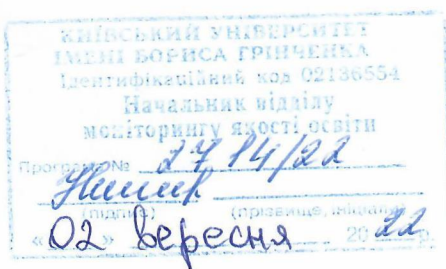 КИЇВСЬКИЙ УНІВЕРСИТЕТ
ІМЕНІ БОРИСА ГРІНЧЕНКА
Ідентифікаційний код 02136554
Начальник відділу
моніторингу якості освіти
Програма № 2714/22
(підпис) (прізвище, ініціали)
«02» вересня 2022 р.